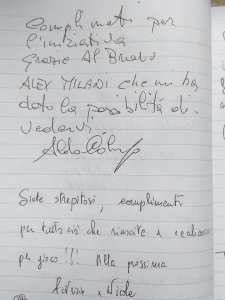 Complimenti per
l'iniziativa
Grazie Al Bravo
ALEX MILANI che mi ha
dato la possibilità di
vedervi.
Aldo
Siete strepitosi, complimenti
per tutto ciò che riuscite a realizzare
per gioco!!! Alla prossima